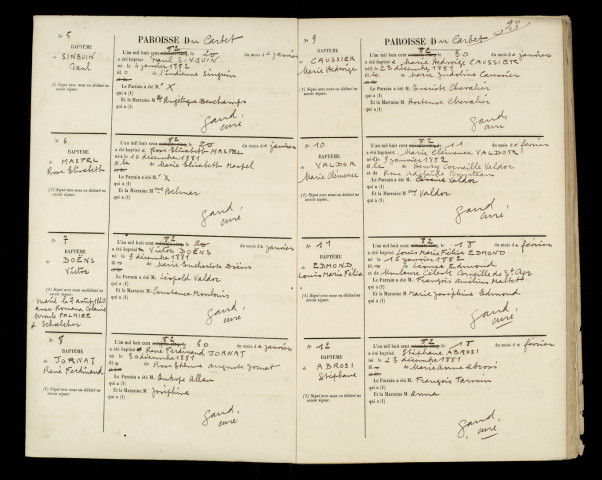 No 5
BAPTÊME
de SINGUIN
Paul
(1) Signé avec nous ou déclaré ne
savoir signer.
PAROISSE Du Carbet
L'an mil huit cent 82 le 20 du mois de janvier
a été baptisé Paul SINGUIN
né le 4 janvier 1882
et de Lindiana Singuin
Le Parrain a été M. X
qui a (1)
Et la Marraine Mlle Angélique Deschamps
qui a (1)
Gand,
curé
No 6
BAPTÊME
de MASPEL
Rose Elisabeth
(1) Signé avec nous ou déclaré ne
savoir signer.
L'an mil huit cent 82 le 20 du mois de janvier
a été baptisé Rose Elisabeth MASPEL
née le 10 décembre 1881
de Marie Elisabeth Maspel
Le Parrain a été M. X
qui a (1)
Et la Marraine Mme Belmer
qui a (1)
Gand,
curé
7
BAPTÊME
de DOËNS
Victor
(1) Signé avec nous ou déclaré ne
marié le 9 août 1920
avec Romana
PALMIRE
à Schœlcher
L'an mil huit cent 82 le 20 du mois de janvier
a été baptisé Victor DOËNS
né le 9 décembre 1881
de Marie Eucharisté Doëns
Le Parrain a été M. Léopold Valdor
qui a (1)
Et la Marraine M Constance Montlouis
qui a (1)
Gand,
curé
No 8
BAPTÊME
de JORNAT
René Ferdinand
(1) Signé avec nous ou déclaré ne
savoir signer.
L'an mil huit cent 82 le 30 du mois de janvier
a été baptisé René Ferdinand JORNAT
né le 30 décembre 1881
de Rose Etienne Auguste Jornat
Le Parrain a été M. Eutrope Allan
qui a (1)
Et la Marraine M Joséphine
qui a (1)
Gand,
curé
93
No 9
BAPTÊME
de CAUSSIER
Marie Hedwige
(1) Signé avec nous ou déclaré ne
savoir signer.
PAROISSE Du Carbet
L'an mil huit cent 82 le 30 du mois de janvier
a été baptisé Marie Hedwige CAUSSIER
née le 23 décembre 1881
de Marie Caussier
Le Parrain a été M. Chevalier
qui a (1)
Et la Marraine M Hortense Chevalier
qui a (1)
Gand,
curé
No 10
BAPTÊME
de VALDOR
Marie Clémence
(1) Signé avec nous ou déclaré ne
savoir signer.
L'an mil huit cent 82 le 11 du mois de février
a été baptisé Marie Clémence VALDOR
née le 9 janvier 1882
de Henry Corneille Valdor
et de Rose Adélaïde
Le Parrain a été M. Valdor
qui a (1)
Et la Marraine Mme Valdor
qui a (1)
Gand,
curé
No 11
BAPTÊME
de EDMOND
Louis Marie Félix
(1) Signé avec nous ou déclaré ne
savoir signer.
L'an mil huit cent 82 le 18 du mois de février
a été baptisé Louis Marie Félix EDMOND
né le 12 janvier 1882
de Léonce Edmond
et de Céleste Corneille de St Cyr
Le Parrain a été M. François
qui a (1)
Et la Marraine M Marie Joséphine Edmond
qui a (1)
Gand,
curé
No 12
BAPTÊME
de ABROSI
Stéphane
(1) Signé avec nous ou déclaré ne
savoir signer.
L'an mil huit cent 82 le 18 du mois de février
a été baptisé Stéphane ABROSI
né le 25 décembre 1881
de Marie Anne Abrosi
Le Parrain a été M. François
qui a (1)
Et la Marraine M Anna
qui a (1)
Gand,
curé